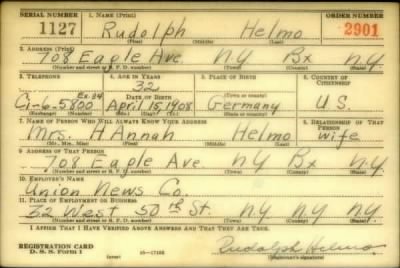 SERIAL NUMBER 1. NAME (Print) ORDER NUMBER
1127 Rudolph Helmo 2901
(First) (Middle) (Last)
2. ADDRESS (Print)
708 Eagle Ave. NY Bx N.Y.
(Number and street or R. F. D. number) (Town) (County) (State)
3. TELEPHONE 4. AGE IN YEARS 5. PLACE OF BIRTH 6. COUNTRY OF CITIZENSHIP
Ex. 34 32
Ci-6-5800 April 15, 1908 Germany U.S.
(Exchange) (Number) (Mo.) (Day) (Yr.)
7. NAME OF PERSON WHO WILL ALWAYS KNOW YOUR ADDRESS 8. RELATIONSHIP OF THAT PERSON
Mrs. HAnnah Helmo wife
(Mr., Mrs., Miss) (First) (Middle) (Last)
9. ADDRESS OF THAT PERSON
708 Eagle Ave NY Bx N.Y.
(Number and street or R. F. D. number) (Town) (County) (State)
10. EMPLOYER'S NAME
Union News Co.
11. PLACE OF EMPLOYMENT OR BUSINESS
32 West 50th St. N.Y. N.Y. N.Y.
(Number and street or R. F. D. number) (Town) (County) (State)
I AFFIRM THAT I HAVE VERIFIED ABOVE ANSWERS AND THAT THEY ARE TRUE.
REGISTRATION CARD
D. S. S. Form 1 (over) Rudolph Helmo